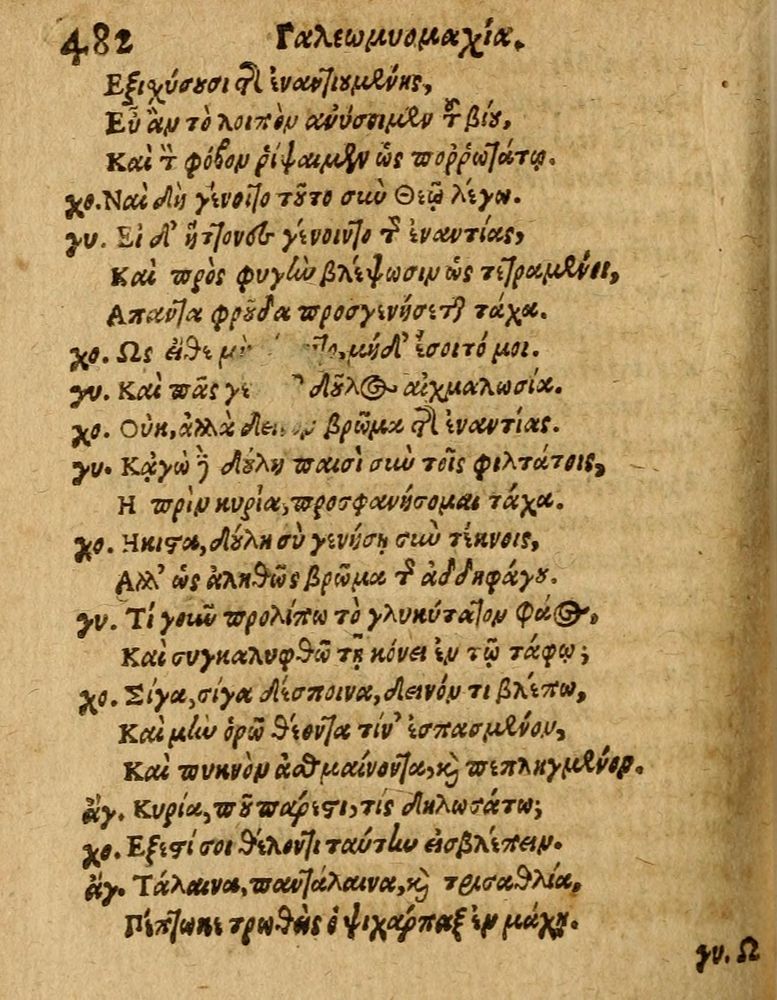 482 Γαλεωμυομαχία.
Εξιχύσουσι τῆς ἐναντιουμένης,
Εὖ ἂν τὸ λοιπὸν ἀνύσοιμεν τοῦ βίου,
Καὶ τὸν φόβον ῥίψαιμεν ὡς ποῤῥωτάτῳ.
χο. Ναὶ δὴ γένοιτο τοῦτο σὺν Θεῷ λέγω.
γυ. Εἰ δ' ἥττονες γένοιντο τῆς ἐναντίας,
Καὶ πρὸς φυγὴν βλέψωσιν ὡς τετραμμένοι,
Απαντα φροῦδα προσγενήσεται τάχα.
χο. Ως εἴθε μὴ μήδ' ἔσοιτό μοι.
γυ. Καὶ πᾶς δοῦλος αἰχμαλωσία.
χο. Οὐκ, ἀλλὰ βρῶμα τῆς ἐναντίας.
γυ. Κᾀγὼ δὲ δούλη παισὶ σὺν τοῖς φιλτάτοις,
Η πρὶν κυρία, προσφανήσομαι τάχα.
χο. Ηκιστα, δούλη σὺ γενήσῃ σὺν τέκνοις,
Αλλ' ὡς ἀληθῶς βρῶμα τῆς ἀδδηφάγου.
γυ. Τί γοῦν προλίπω τὸ γλυκύτατον φάος,
Καὶ συγκαλυφθῶ τῇ κόνει ἐν τῷ τάφῳ;
χο. Σίγα, σίγα δέσποινα, δεινόν τι βλέπω,
Καὶ μὴν ὁρῶ θέοντα τίν' ἐσπασμένον,
Καὶ πυκνὸν ἀσθμαίνοντα, καὶ πεπληγμένον.
ἄγ. Κυρία, ποῦ πάρεστι, τίς δηλωσάτω;
χο. Εξεστί σοι θέλοντι ταύτην εἰσβλέπειν.
ἄγ. Τάλαινα, παντάλαινα, καὶ τρισαθλία,
Πέπτωκε τρωθεὶς ὁ ψιχάρπαξ ἐν μάχῃ.
γυ. Ω